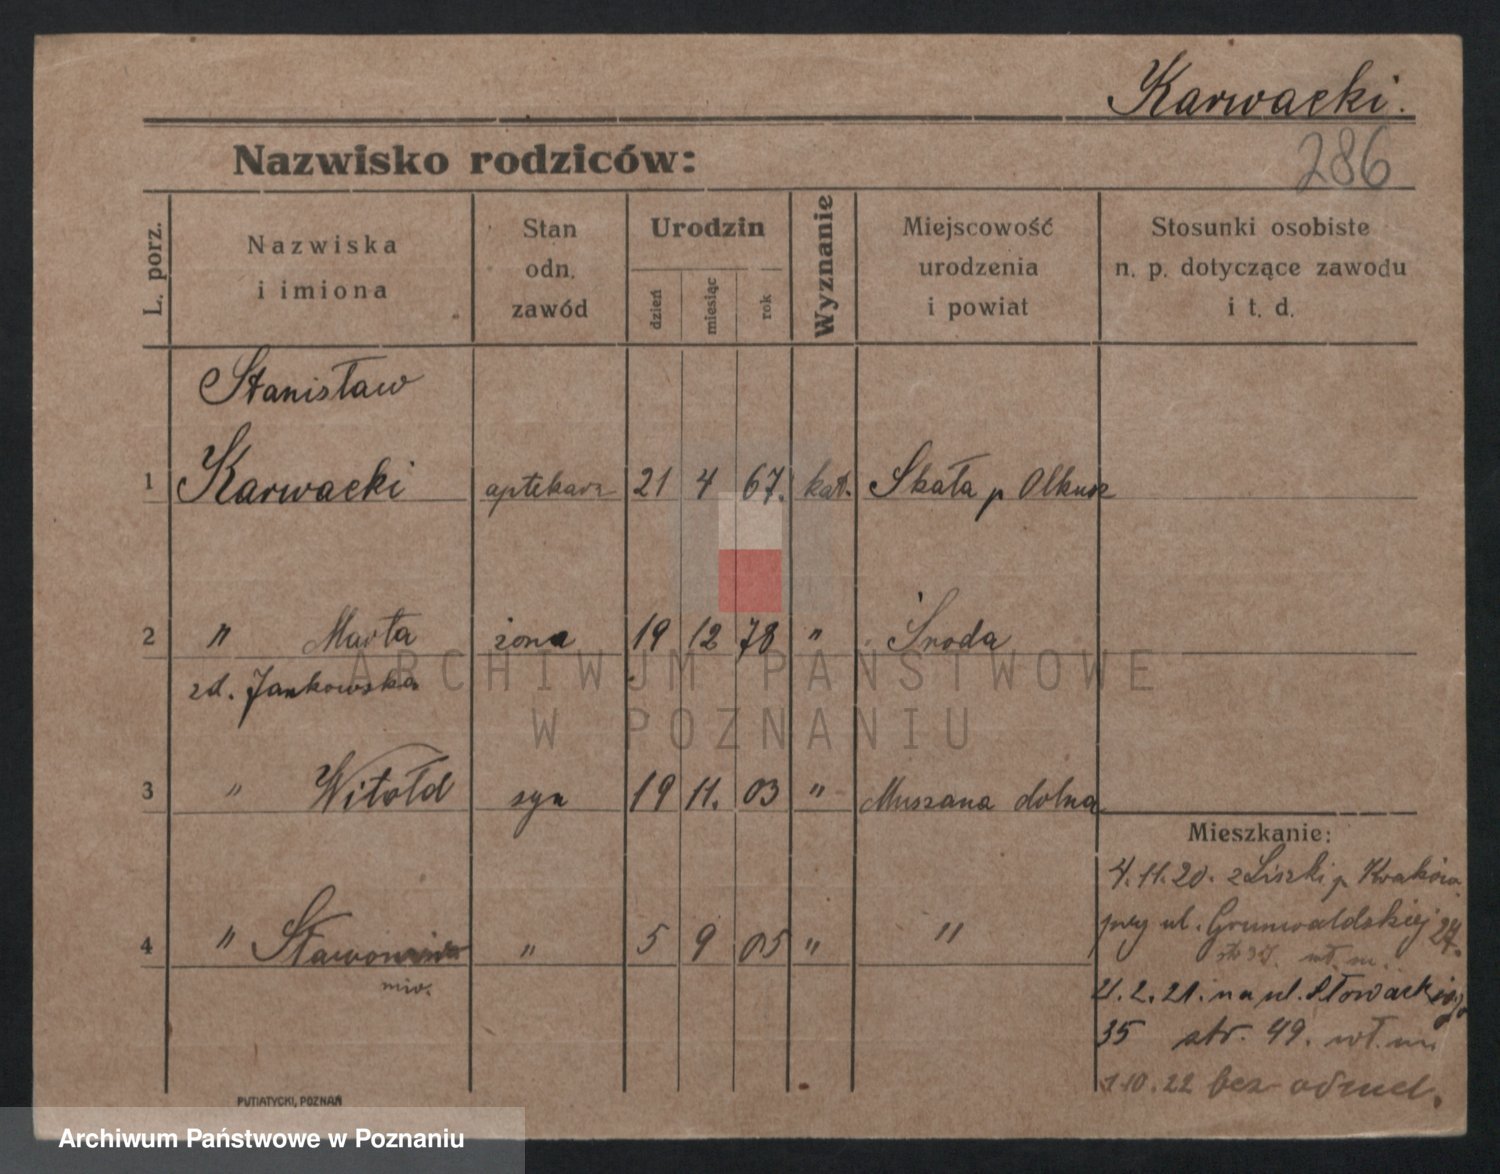 Karwacki.
286
Nazwisko rodziców:
L. porz.
Nazwiska
i imiona
Stan
odn.
zawód
Urodzin
dzień
miesiąc
rok
Wyznanie
Miejscowość
urodzenia
i powiat
Stosunki osobiste
n. p. dotyczące zawodu
i t. d.
Stanisław
1 Karwacki aptekarz 21 4 67. kat. Skała p Olkusz
2 " Marta żona 19 12 78 " Środa
zd. Jankowska
3 " Witołd syn 19 11. 03 " Muszana dolna
Mieszkanie:
4.11.20. z Liszki p Kraków
4 " " 5 9 05 " "
przy ul. Grunwaldskiej 24.
21.2.21. na ul. Słowackiego
35 str. 49. wł. m.
1.10.22 bez odmel.
PUTIATYCKI, POZNAŃ
ARCHIWUM PAŃSTWOWE
W POZNANIU
Archiwum Państwowe w Poznaniu